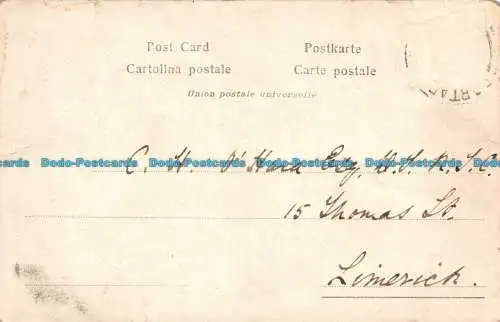 Post Card Postkarte
Cartolina postale Carte postale
Union postale universelle
C. H. O'Hara Esq,
15 Thomas St.
Limerick.
Dodo-Postcards Dodo-Postcards Dodo-Postcards Dodo-Postcards Dodo-Postcards